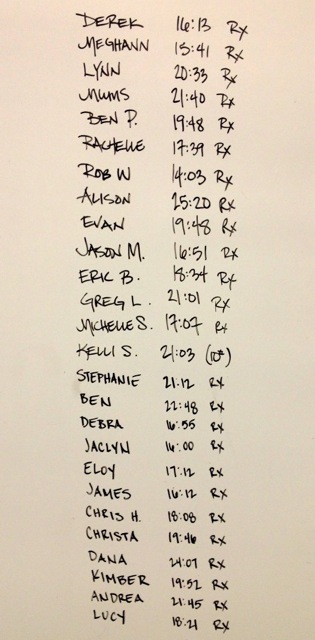 DEREK 16:13 Rx
MEGHANN 15:41 Rx
LYNN 20:33 Rx
MUMS 21:40 Rx
BEN P. 19:48 Rx
RACHELLE 17:39 Rx
ROB W 14:03 Rx
ALISON 25:20 Rx
EVAN 19:48 Rx
JASON M. 16:51 Rx
ERIC B. 18:34 Rx
GREG L. 21:01 Rx
MICHELLE S. 17:07 Rx
KELLI S. 21:03 (10#)
STEPHANIE 21:12 RX
BEN 22:48 RX
DEBRA 16:55 RX
JACLYN 16:00 RX
ELOY 17:12 RX
JAMES 16:12 RX
CHRIS H. 18:08 RX
CHRISTA 19:46 RX
DANA 24:07 RX
KIMBER 19:52 RX
ANDREA 21:45 RX
LUCY 18:21 RX